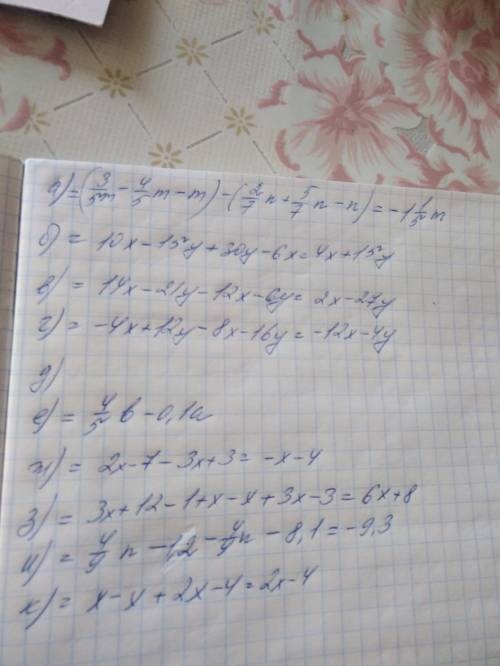 а) = (3/5m - 4/5m - m) - (2/7n + 5/7n - n) = -1 1/5m
б) = 10x - 15y + 30y - 6x = 4x + 15y
в) = 14x - 21y - 12x - 6y = 2x - 27y
г) = -4x + 12y - 8x - 16y = -12x - 4y
д)
е) = 4/5b - 0,1a
ж) = 2x - 7 - 3x + 3 = -x - 4
з) = 3x + 12 - 1 + x - x + 3x - 3 = 6x + 8
и) = 4/9n - 1,2 - 4/9n - 8,1 = -9,3
к) = x - x + 2x - 4 = 2x - 4